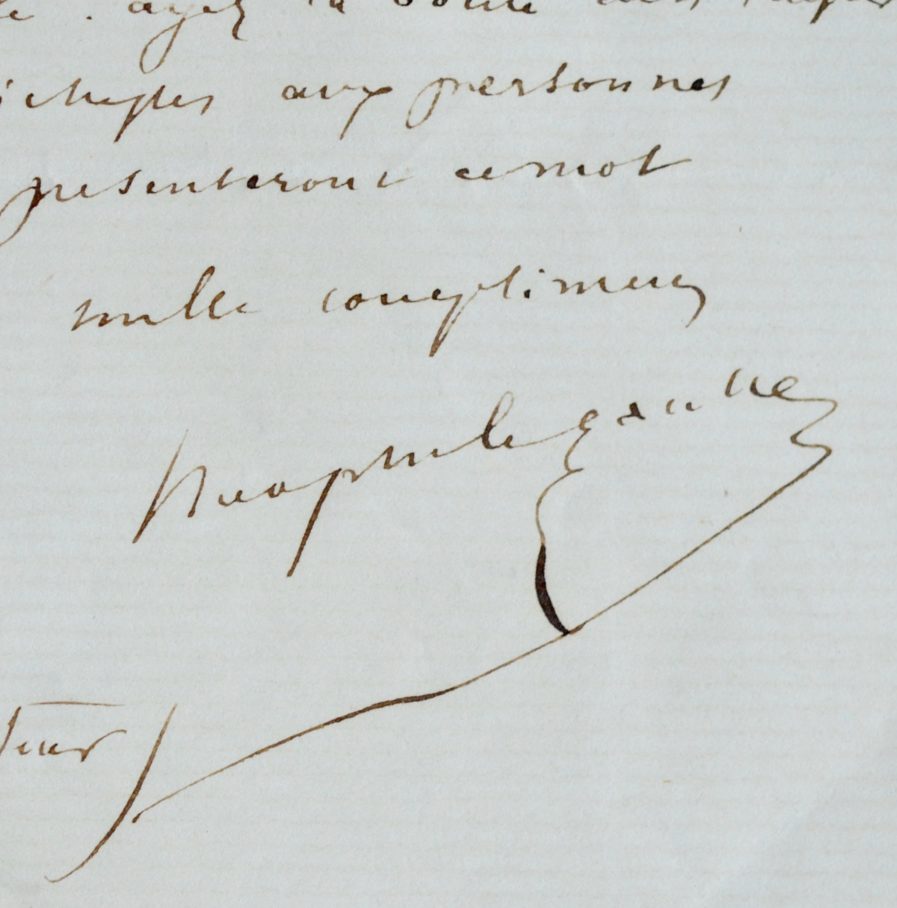 ayez la bonté
aux personnes
presenteront ce mot
mille compliments
theophile gautier